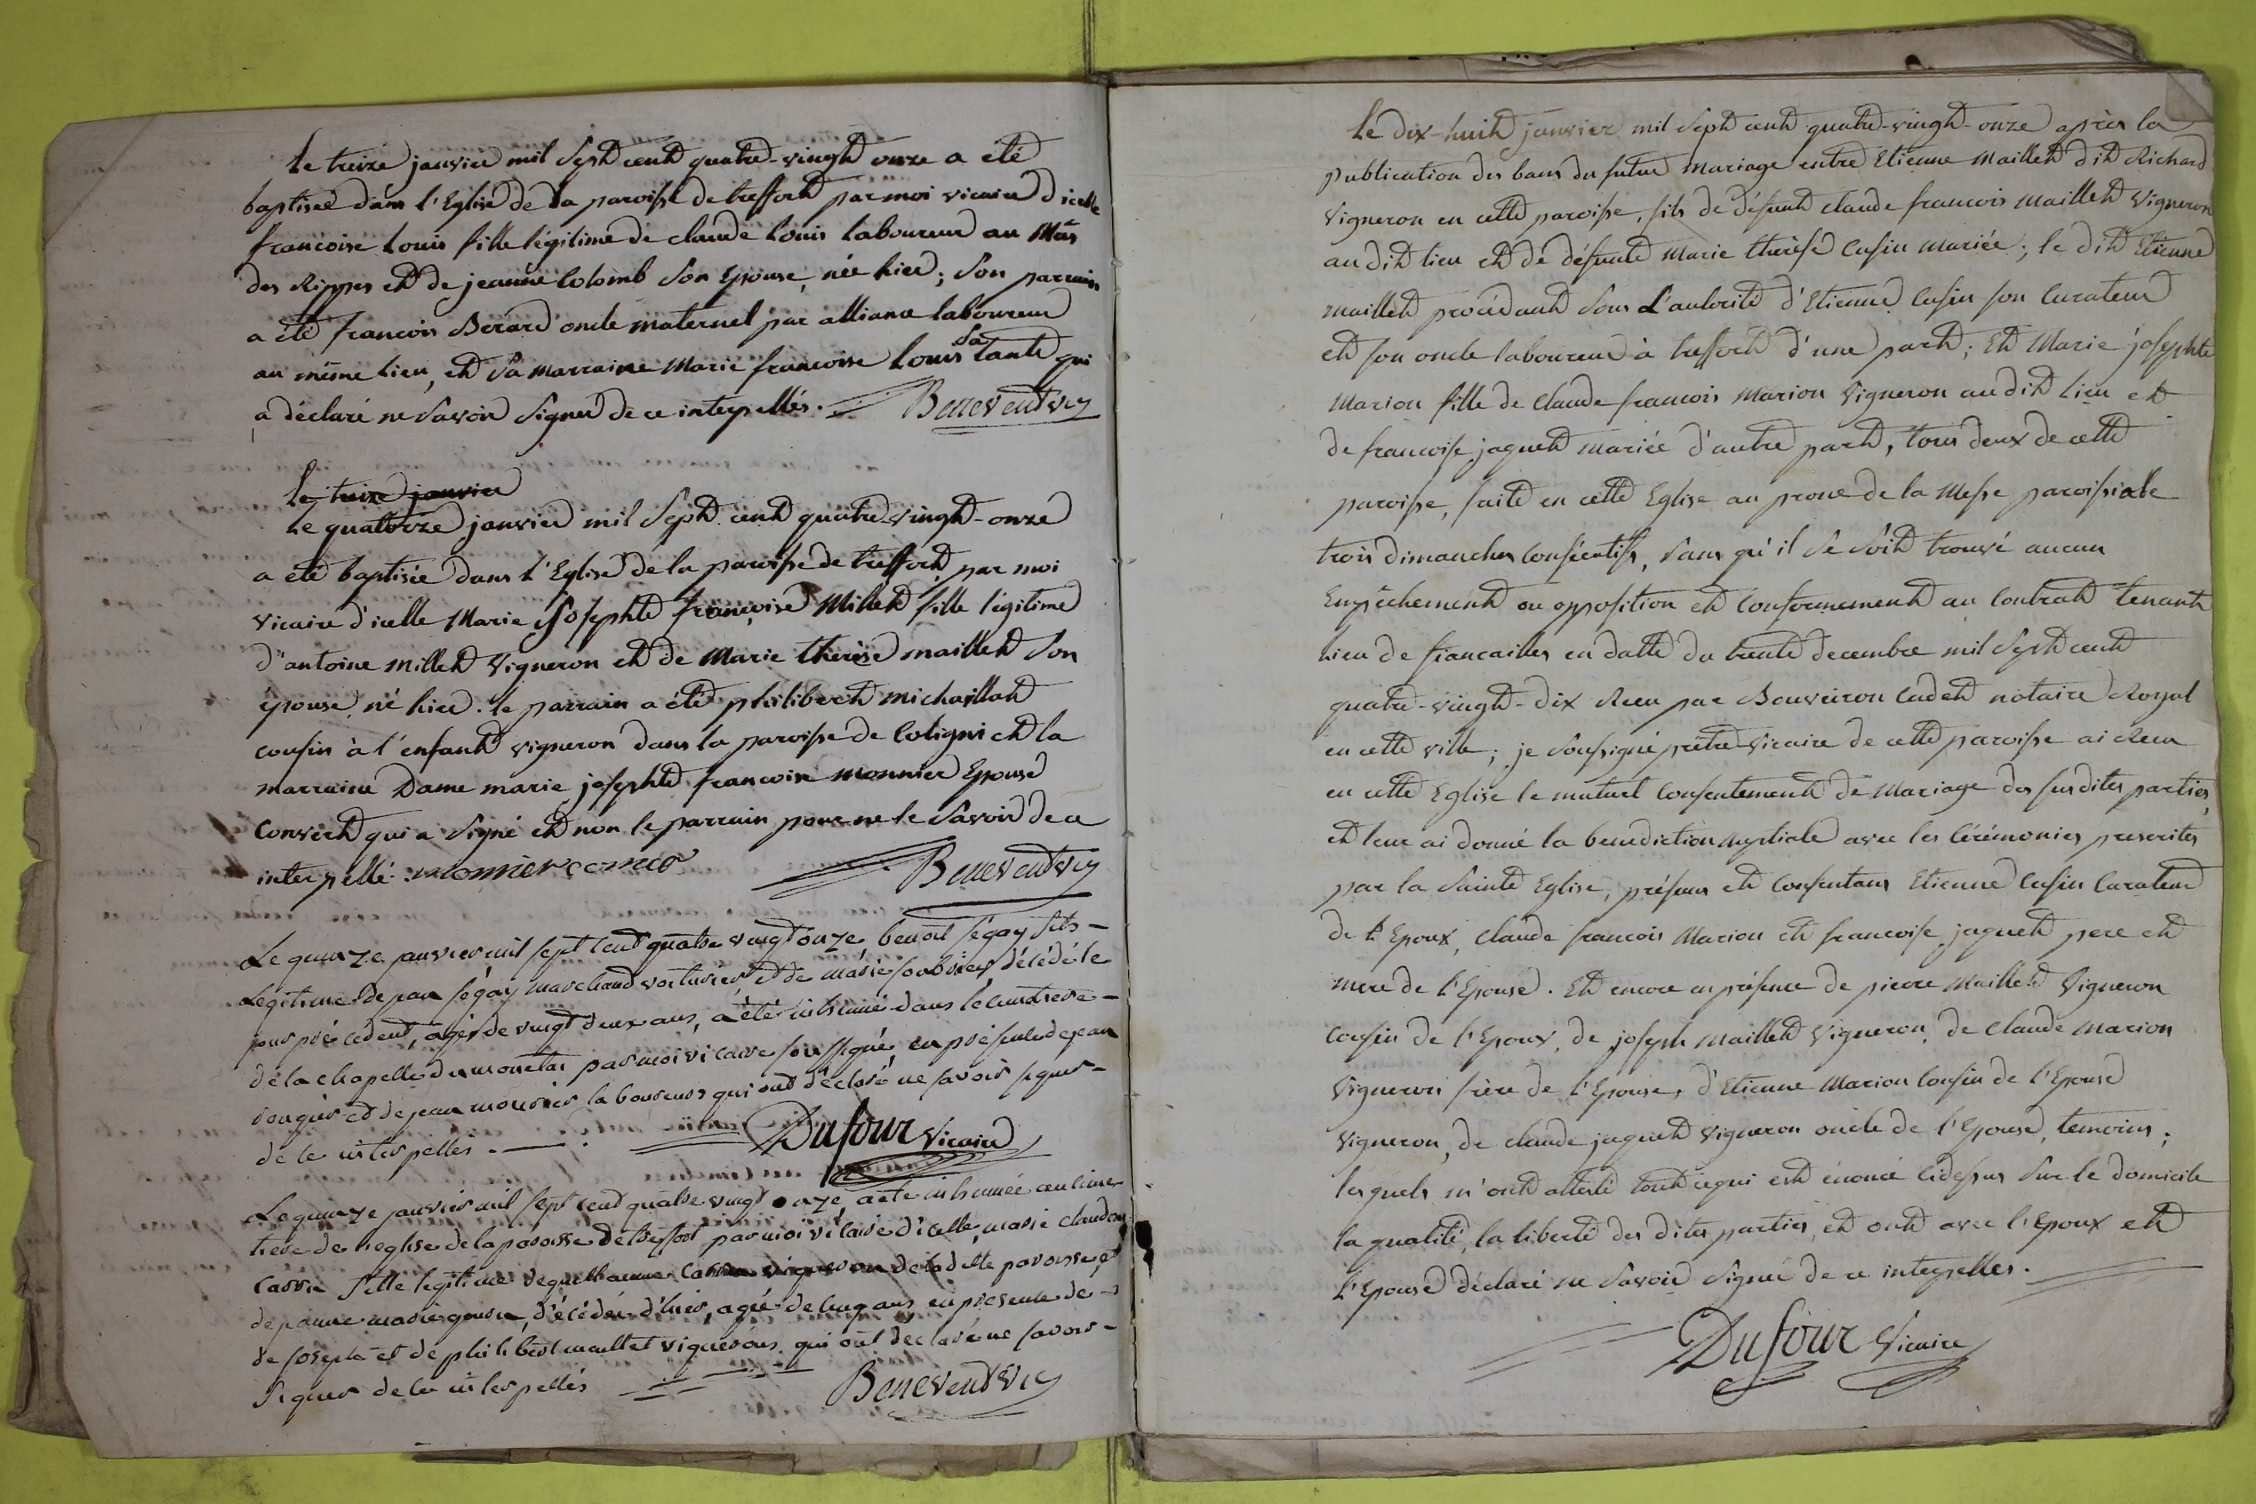 Le treize janvier mil Sept cent quatre-vingt onze a été
baptisée dans l'Eglise de la paroisse de treffort par moi vicaire d'icelle
francoise Louis fille légitime de claude Louis laboureur au Mas
des Rippes et de jeanne Colomb Son Epouse, née hier; Son parrain
a été francois Berard oncle maternel par alliance laboureur
au même lieu, et Sa marraine Marie francoise Louis Sa tante qui
a déclaré ne Savoir Signer de ce interpellés. Benevent vic
Le treize janvier
Le quatorze janvier mil Sept cent quatre vingt-onze
a été baptisée dans L'Eglise de la paroisse de treffort, par moi
vicaire d'icelle Marie Josephte françoise Millet fille légitime
d'antoine millet Vigneron et de Marie therese maillet Son
épouse, né hier. le parrain a été philibert michaillat
cousin à l'enfant vigneron dans la paroisse de Coligni et la
marraine Dame marie josephte francoise monnier Epouse
Convert qui a Signé et non le parrain pour ne le Savoir de ce
interpellé. monnier Benevent vic
Le quinze janvier mil sept cent quatre vingt onze, benoit segay fils-
Légitime de jean segay marchand voiturier et de marie décédé le
jour précedent, agé de vingt deux ans, a été inhumé dans le cimetiere-
de la chapelle du par moi vicaire soussigné, en présence de jean
et de jean mourier laboureurs qui ont déclaré ne savoir signer-
de ce interpellés. Dufour Vicaire
Le quinze janvier mil sept cent quatre vingt onze, a été inhumée au cime-
tiere de l'eglise de la paroisse de treffort par moi vicaire d'icelle, marie claudine
fille légitime de guillaume vigneron de la dite paroisse, et
de jeanne marie décédée d'hier, agée de cinq ans, en présence de
de joseph et de philibert maillet vignerons qui ont déclaré ne savoir-
signer de ce interpellés Benevent vic
Le dix-huit janvier mil Sept cent quatre-vingt-onze après la
publication des bans du futur mariage entre Etienne Maillet dit Richard
Vigneron en cette paroisse, fils de défunt claude francois Maillet Vigneron
au dit lieu et de défunte Marie thérèse Cusin mariée; le dit Etienne
maillet procédant Sous L'autorité d'Etienne Cusin son Curateur
et son oncle laboureur à treffort d'une part; Et Marie josephte
Marion fille de Claude francois Marion Vigneron audit Lieu et
de francoise jaquet mariée d'autre part, tous deux de cette
paroisse, faite en cette Eglise au prone de la Messe paroissiale
trois dimanches consécutifs, Sans qu'il Se Soit trouvé aucun
Empêchement ou opposition et Conformement au Contrat tenant
Lieu de fiancailles en datte du trente decembre mil Sept cent
quatre-vingt-dix Recu par Bouveiron Cadet notaire Royal
en cette ville; je Soussigné prêtre Vicaire de cette paroisse ai Recu
en cette Eglise le mutuel Consentement de Mariage des susdites parties,
et leur ai donné la benediction Nuptiale avec les Cérémonies prescrites
par la Sainte Eglise, présens et Consentans Etienne Cusin Curateur
de l'Epoux, Claude francois Marion et francoise jaquet pere et
mere de L'Epouse. Et encore en présence de pierre Maillet Vigneron
Cousin de l'Epoux, de joseph Maillet Vigneron, de Claude Marion
Vigneron frère de l'Epouse, d'Etienne Marion Cousin de l'Epouse
Vigneron, de claude jaquet Vigneron oncle de l'Epouse, temoins;
lesquels m'ont attesté tout ce qui est énoncé cidessus Sur le domicile
la qualité, la liberté des dites parties, et ont avec l'Epoux et
L'Epouse déclaré ne Savoir Signer de ce interpelles.
Dufour Vicaire